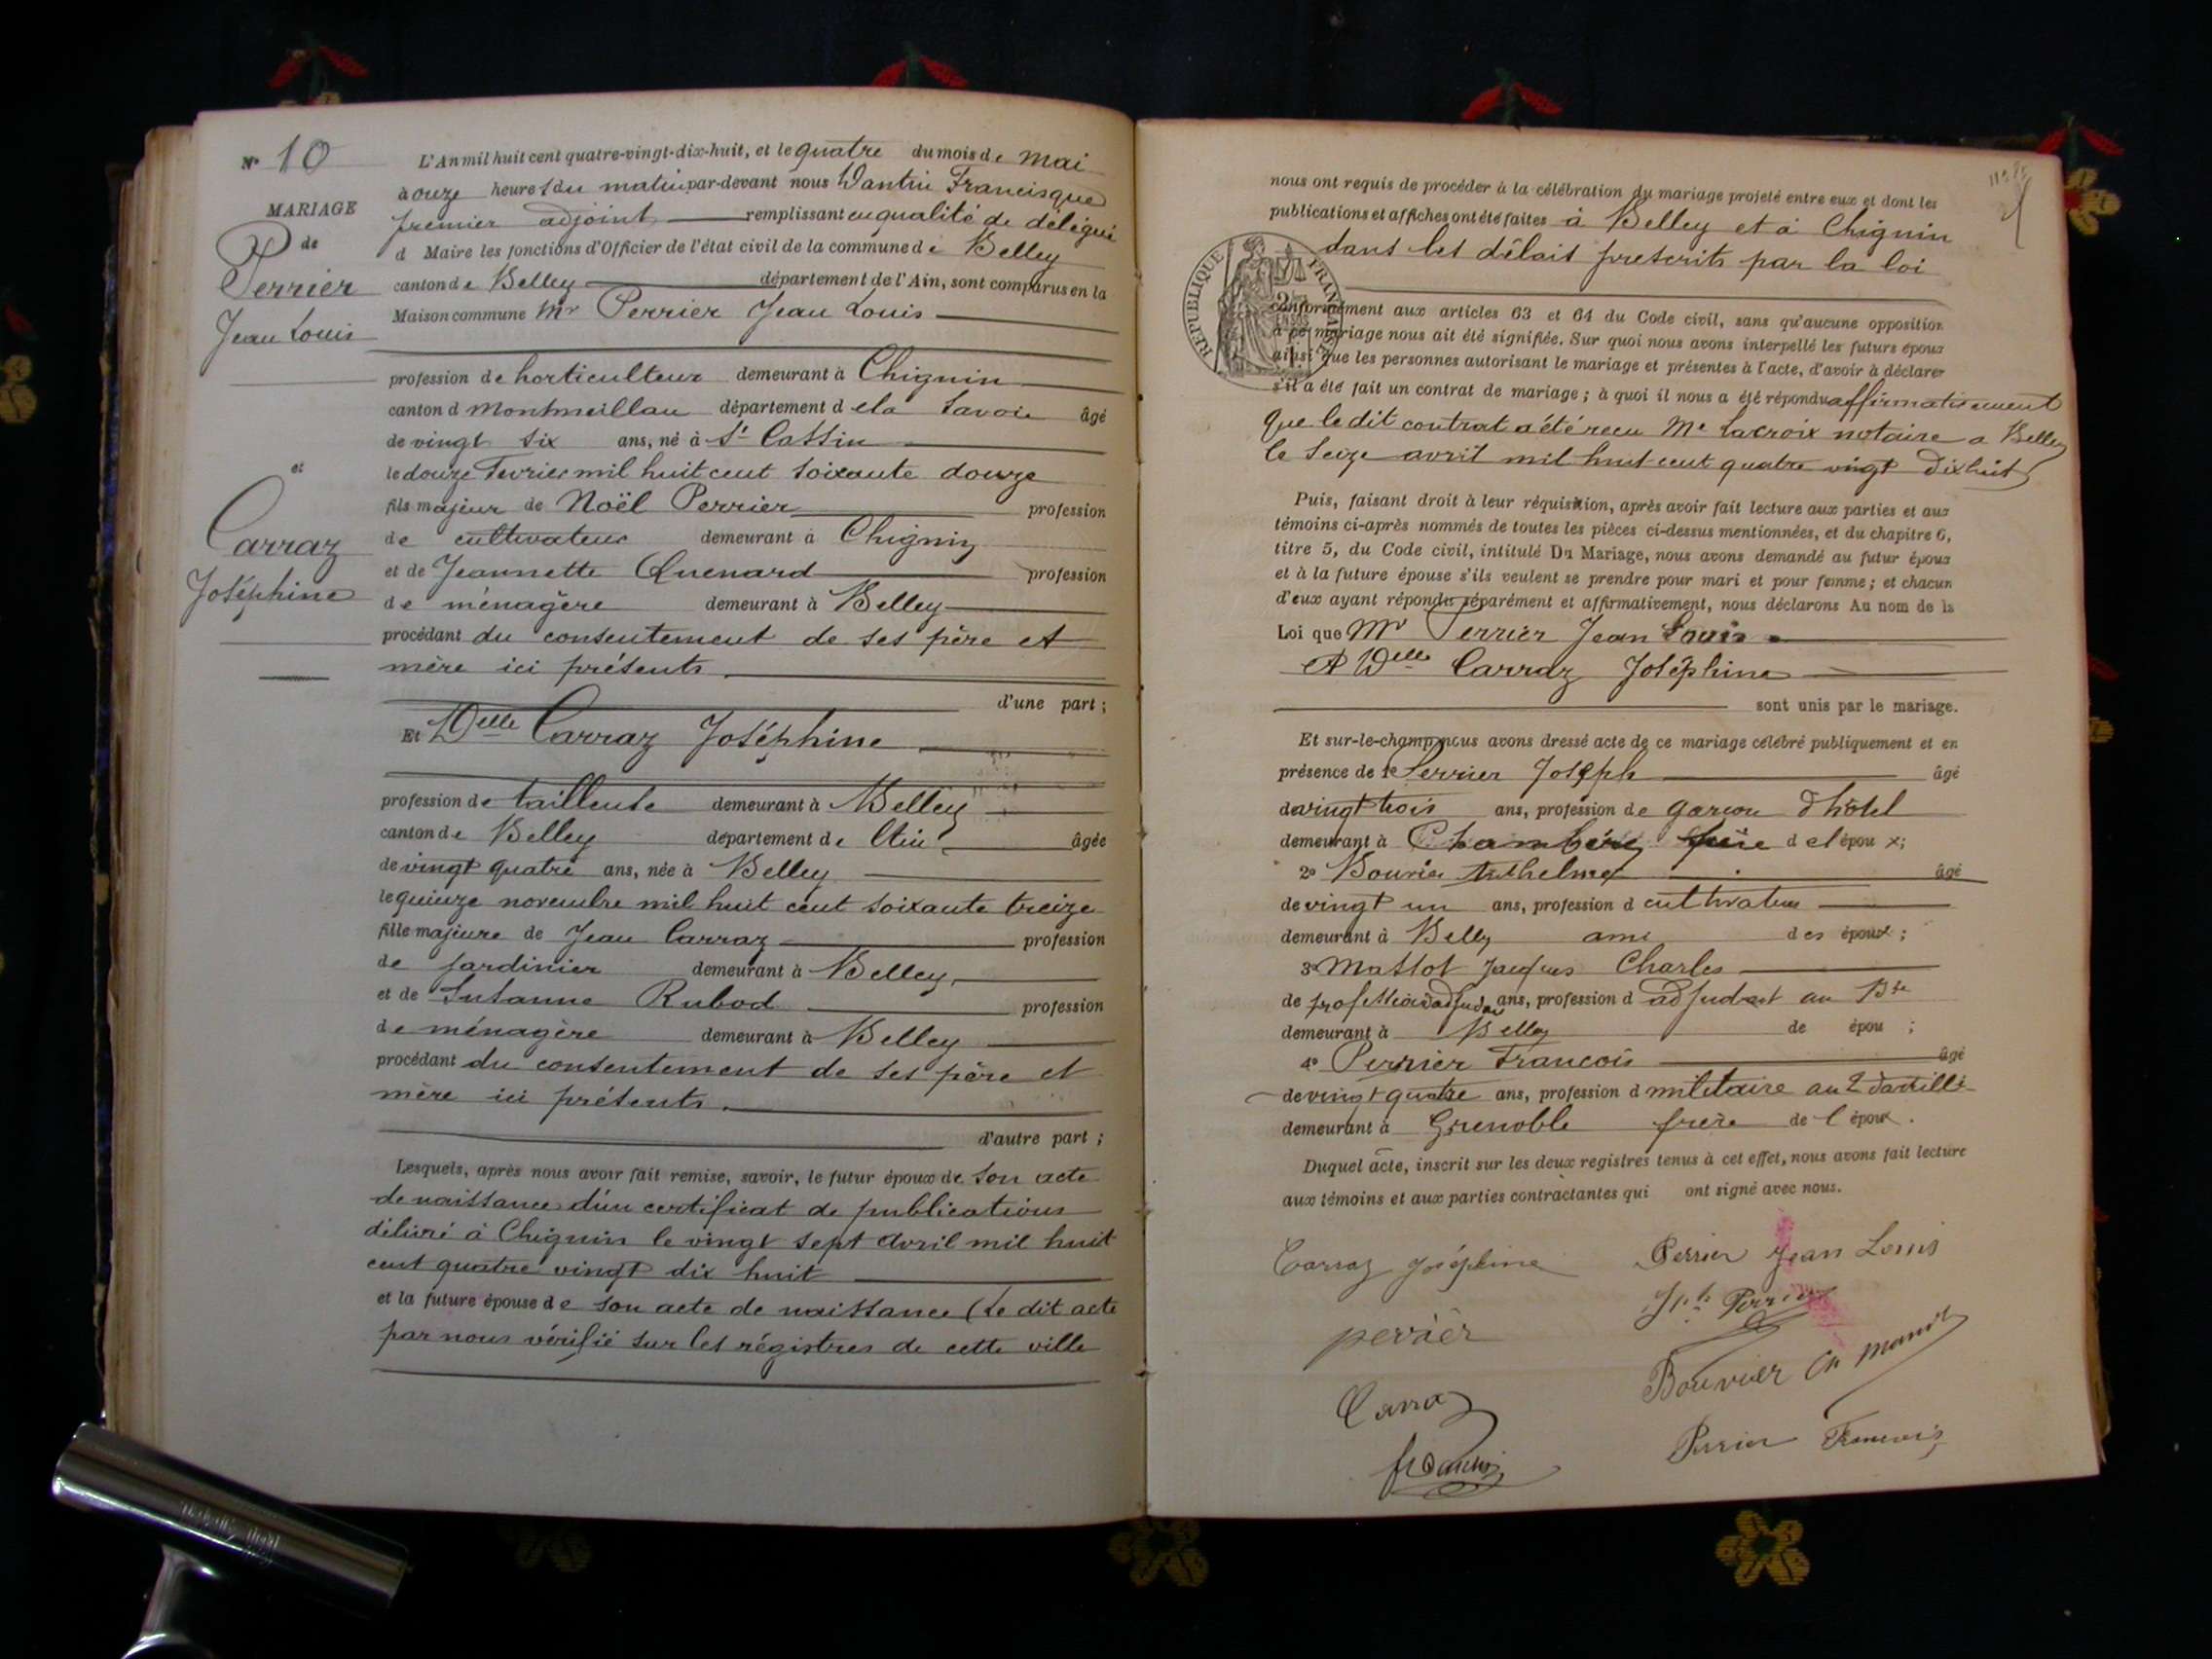 N° 10
MARIAGE
de
Perrier
Jean Louis
et
Carraz
Joséphine
L'An mil huit cent quatre-vingt-dix-huit, et le quatre du mois de mai
à onze heures du matin par-devant nous Dantin Francisque
premier adjoint remplissant en qualité de délégué
d Maire les fonctions d'Officier de l'état civil de la commune de Belley
canton de Belley département de l'Ain, sont comparus en la
Maison commune Mr Perrier Jean Louis
profession de horticulteur demeurant à Chignin
canton d Montmeillan département d ela Savoie âgé
de vingt six ans, né à St Cassin
le douze Fevrier mil huit cent soixante douze
fils majeur de Noël Perrier profession
de cultivateur demeurant à Chignin
et de Jeannette Quenard profession
de ménagère demeurant à Belley
procédant du consentement de ses père et
mère ici présents
d'une part ;
Et Delle Carraz Joséphine
profession de tailleuse demeurant à Belley
canton de Belley département de l'Ain âgée
de vingt quatre ans, née à Belley
le quinze novembre mil huit cent soixante treize
fille majeure de Jean Carraz profession
de jardinier demeurant à Belley
et de Susanne Rubod profession
de ménagère demeurant à Belley
procédant du consentement de ses père et
mère ici présents
d'autre part ;
Lesquels, après nous avoir fait remise, savoir, le futur époux de son acte
de naissance d'un certificat de publications
délivré à Chignin le vingt sept avril mil huit
cent quatre vingt dix huit
et la future épouse de son acte de naissance (Le dit acte
par nous vérifié sur les régistres de cette ville
nous ont requis de procéder à la célébration du mariage projeté entre eux et dont les
publications et affiches ont été faites à Belley et à Chignin
dans les délais prescrits par la loi
RÉPUBLIQUE FRANÇAISE
conformément aux articles 63 et 64 du Code civil, sans qu'aucune opposition
à ce mariage nous ait été signifiée. Sur quoi nous avons interpellé les futurs époux
ainsi que les personnes autorisant le mariage et présentes à l'acte, d'avoir à déclarer
s'il a été fait un contrat de mariage ; à quoi il nous a été répondu affirmativement
que le dit contrat a été recu Me Lacroix notaire a Belley
le Seize avril mil huit cent quatre vingt dix huit
Puis, faisant droit à leur réquisition, après avoir fait lecture aux parties et aux
témoins ci-après nommés de toutes les pièces ci-dessus mentionnées, et du chapitre 6,
titre 5, du Code civil, intitulé Du Mariage, nous avons demandé au futur époux
et à la future épouse s'ils veulent se prendre pour mari et pour femme ; et chacun
d'eux ayant répondu séparément et affirmativement, nous déclarons Au nom de la
Loi que Mr Perrier Jean Louis
et Delle Carraz Joséphine
sont unis par le mariage.
Et sur-le-champ nous avons dressé acte de ce mariage célébré publiquement et en
présence de 1e Perrier Joseph âgé
de vingt trois ans, profession de garçon d'hôtel
demeurant à Chambéry frère d el épou x ;
2° Bouvier Anthelme âgé
de vingt un ans, profession d cultivateur
demeurant à Belley ami des époux ;
3° Mattot Jacques Charles
de ans, profession d adjudant au
demeurant à Belley de épou ;
4° Perrier Francois âgé
de vingt quatre ans, profession d militaire au 2 d'artille
demeurant à Grenoble frère de l époux.
Duquel acte, inscrit sur les deux registres tenus à cet effet, nous avons fait lecture
aux témoins et aux parties contractantes qui ont signé avec nous.
Carraz Joséphine Perrier Jean Louis
Jph Perrier
perrier
Bouvier
Carraz
Perrier Francois